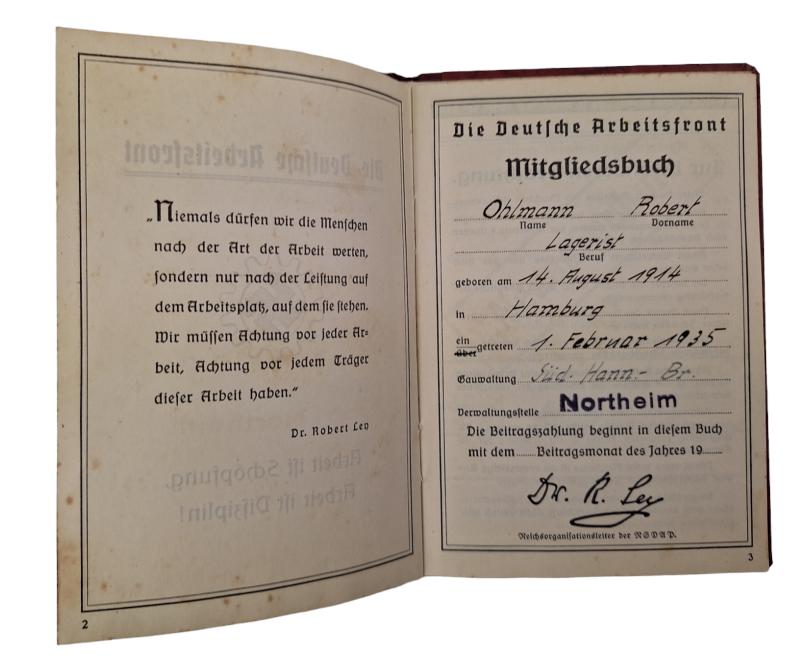 „Niemals dürfen wir die Menschen
nach der Art der Arbeit werten,
sondern nur nach der Leistung auf
dem Arbeitsplatz, auf dem sie stehen.
Wir müssen Achtung vor jeder Ar-
beit, Achtung vor jedem Träger
dieser Arbeit haben.“
Dr. Robert Ley
Die Deutsche Arbeitsfront
Arbeit ist Schöpfung,
Arbeit ist Disziplin!
2
Die Deutsche Arbeitsfront
Mitgliedsbuch
Ohlmann Robert
Name Vorname
Lagerist
Beruf
geboren am 14. August 1914
in Hamburg
ein
über getreten 1. Februar 1935
Gauwaltung Süd. Hann.- Br.
Verwaltungsstelle Northeim
Die Beitragszahlung beginnt in diesem Buch
mit dem ........ Beitragsmonat des Jahres 19........
Dr. R. Ley
Reichsorganisationsleiter der NSDAP.
3